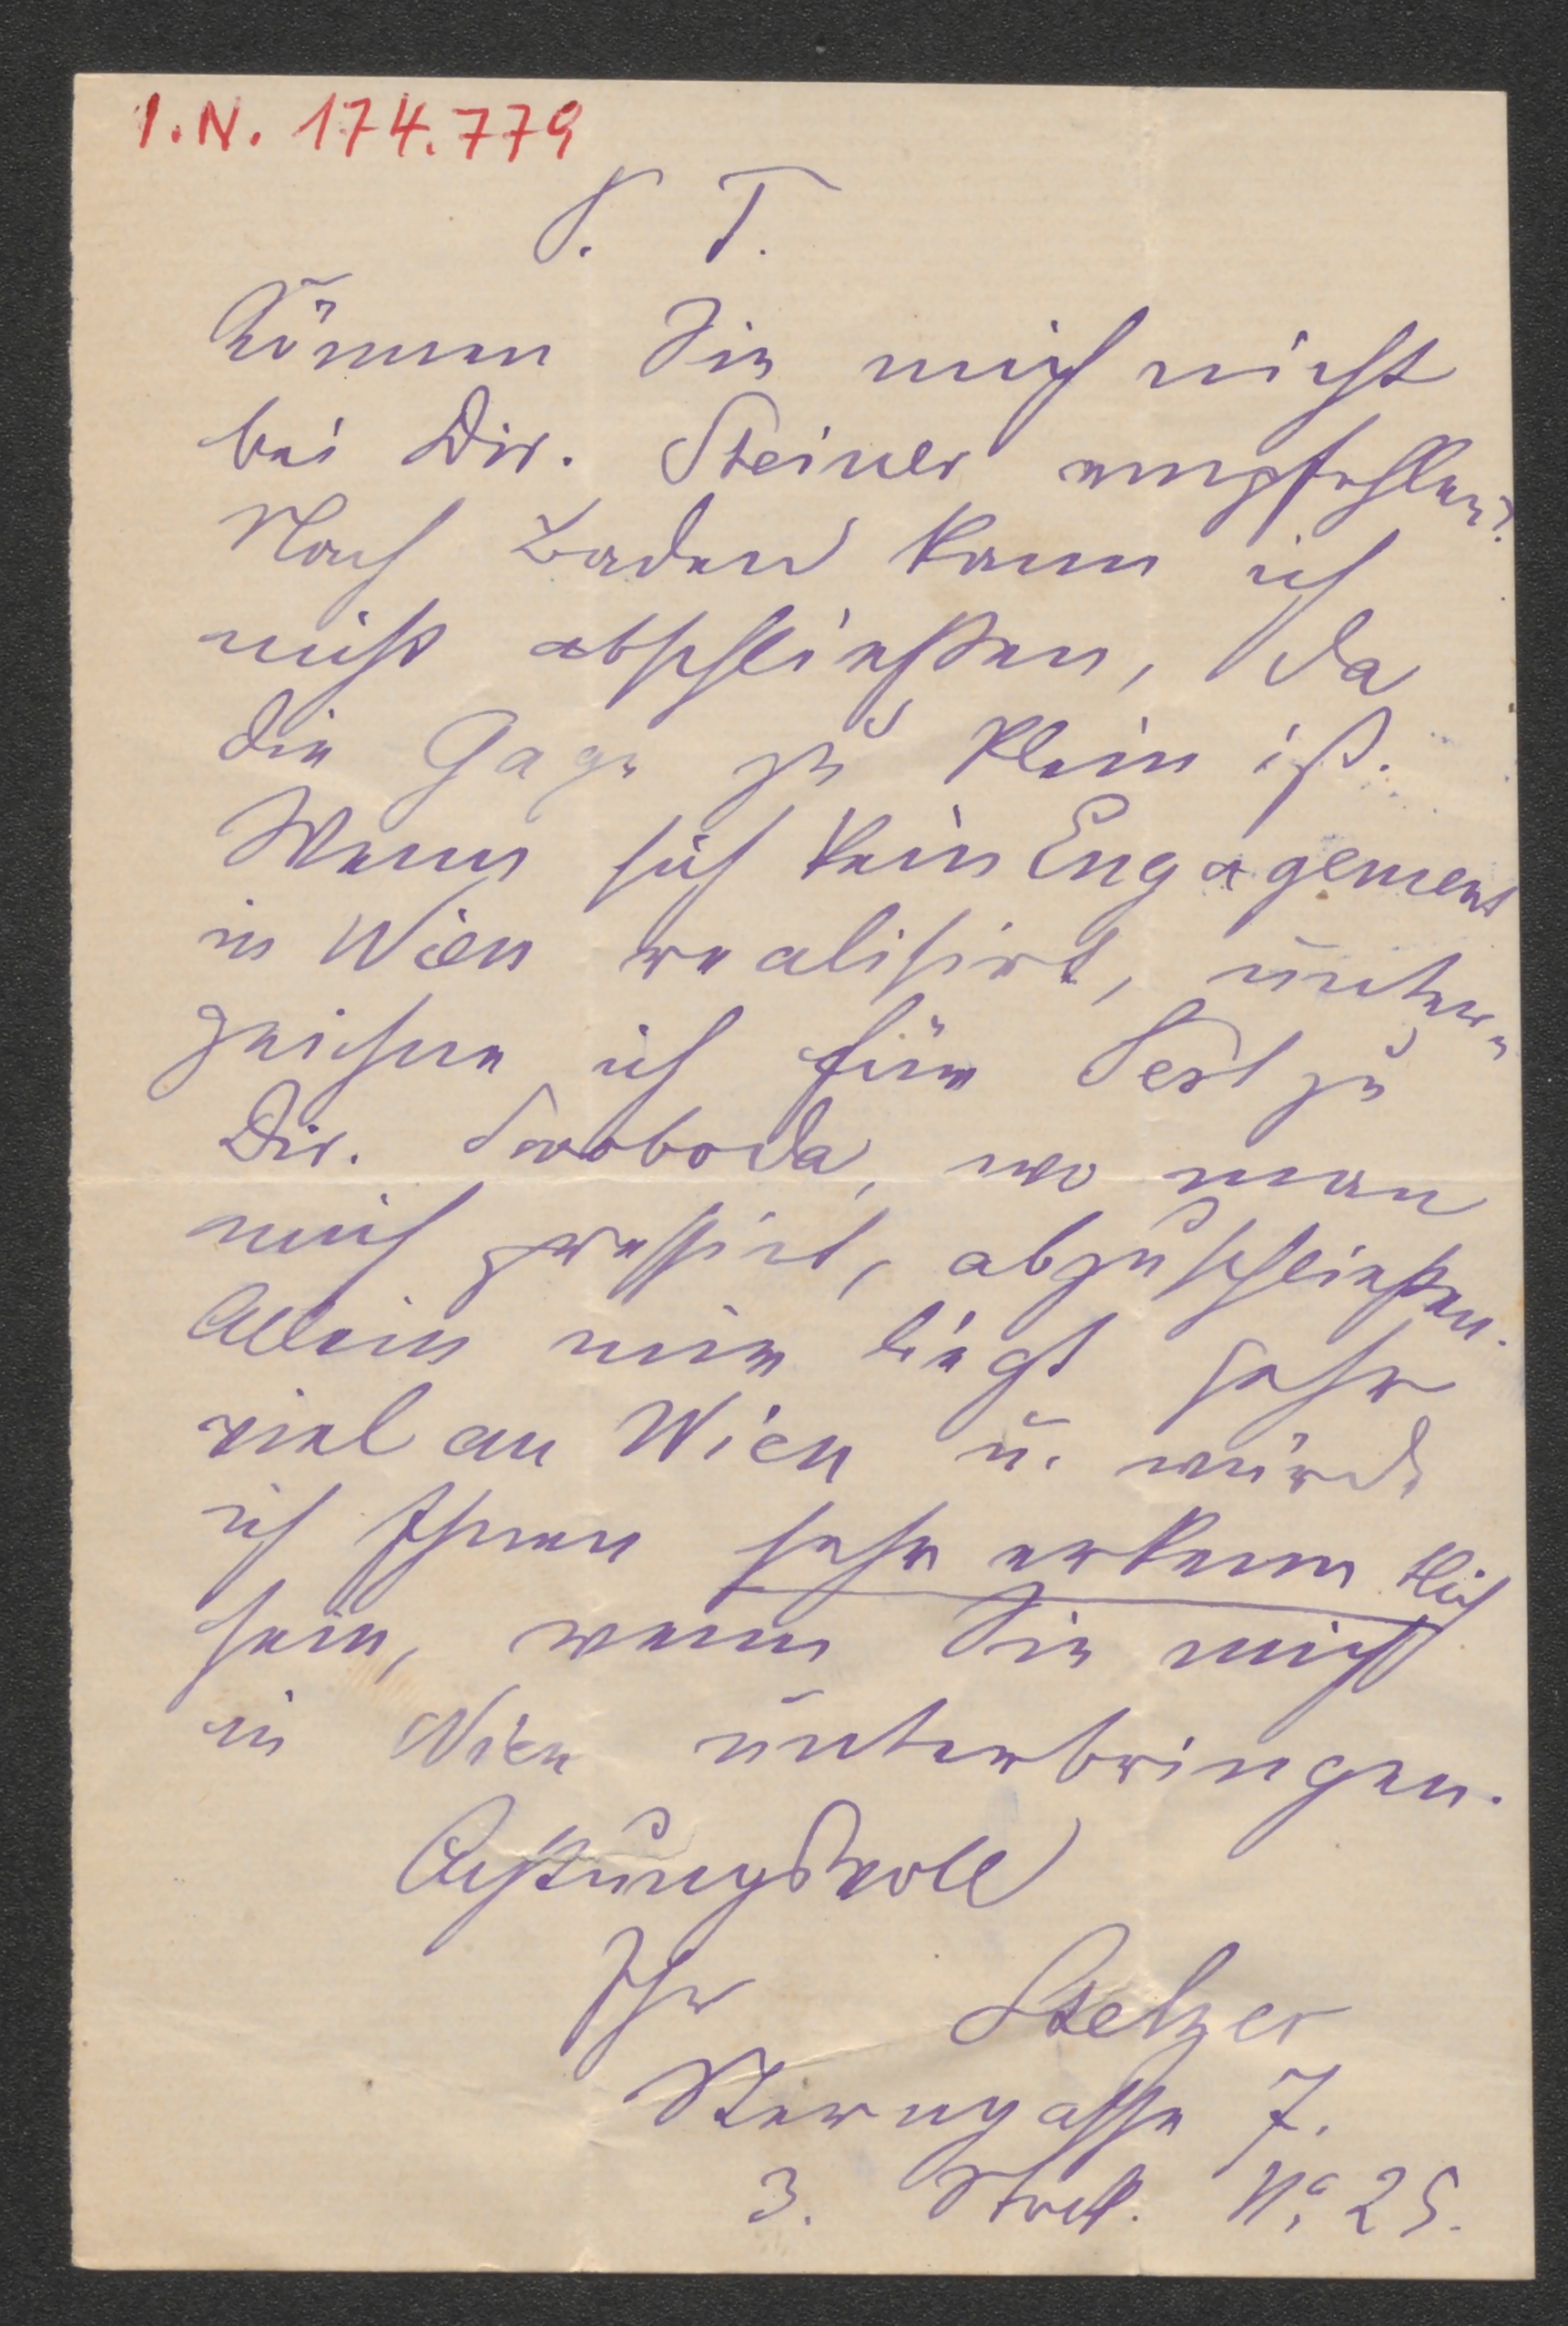 I.N. 174.779
P. T.
Können Sie mich nicht
bei Dir. Steiner empfehlen?
Nach Baden kann ich
nicht abschließen, da
die Gage zu klein ist.
Wenn sich kein Engagement
in Wien realisirt, unter=
zeichne ich für Pest zu
Dir. Swoboda, wo man
mich pressirt, abzuschließen.
Allein mir liegt sehr
viel an Wien u. würde
ich Ihnen sehr erkenntlich
sein, wenn Sie mich
in Wien unterbringen.
Achtungsvoll
Ihr Stelzer
Sterngasse 7.
3. Stock. No. 25.